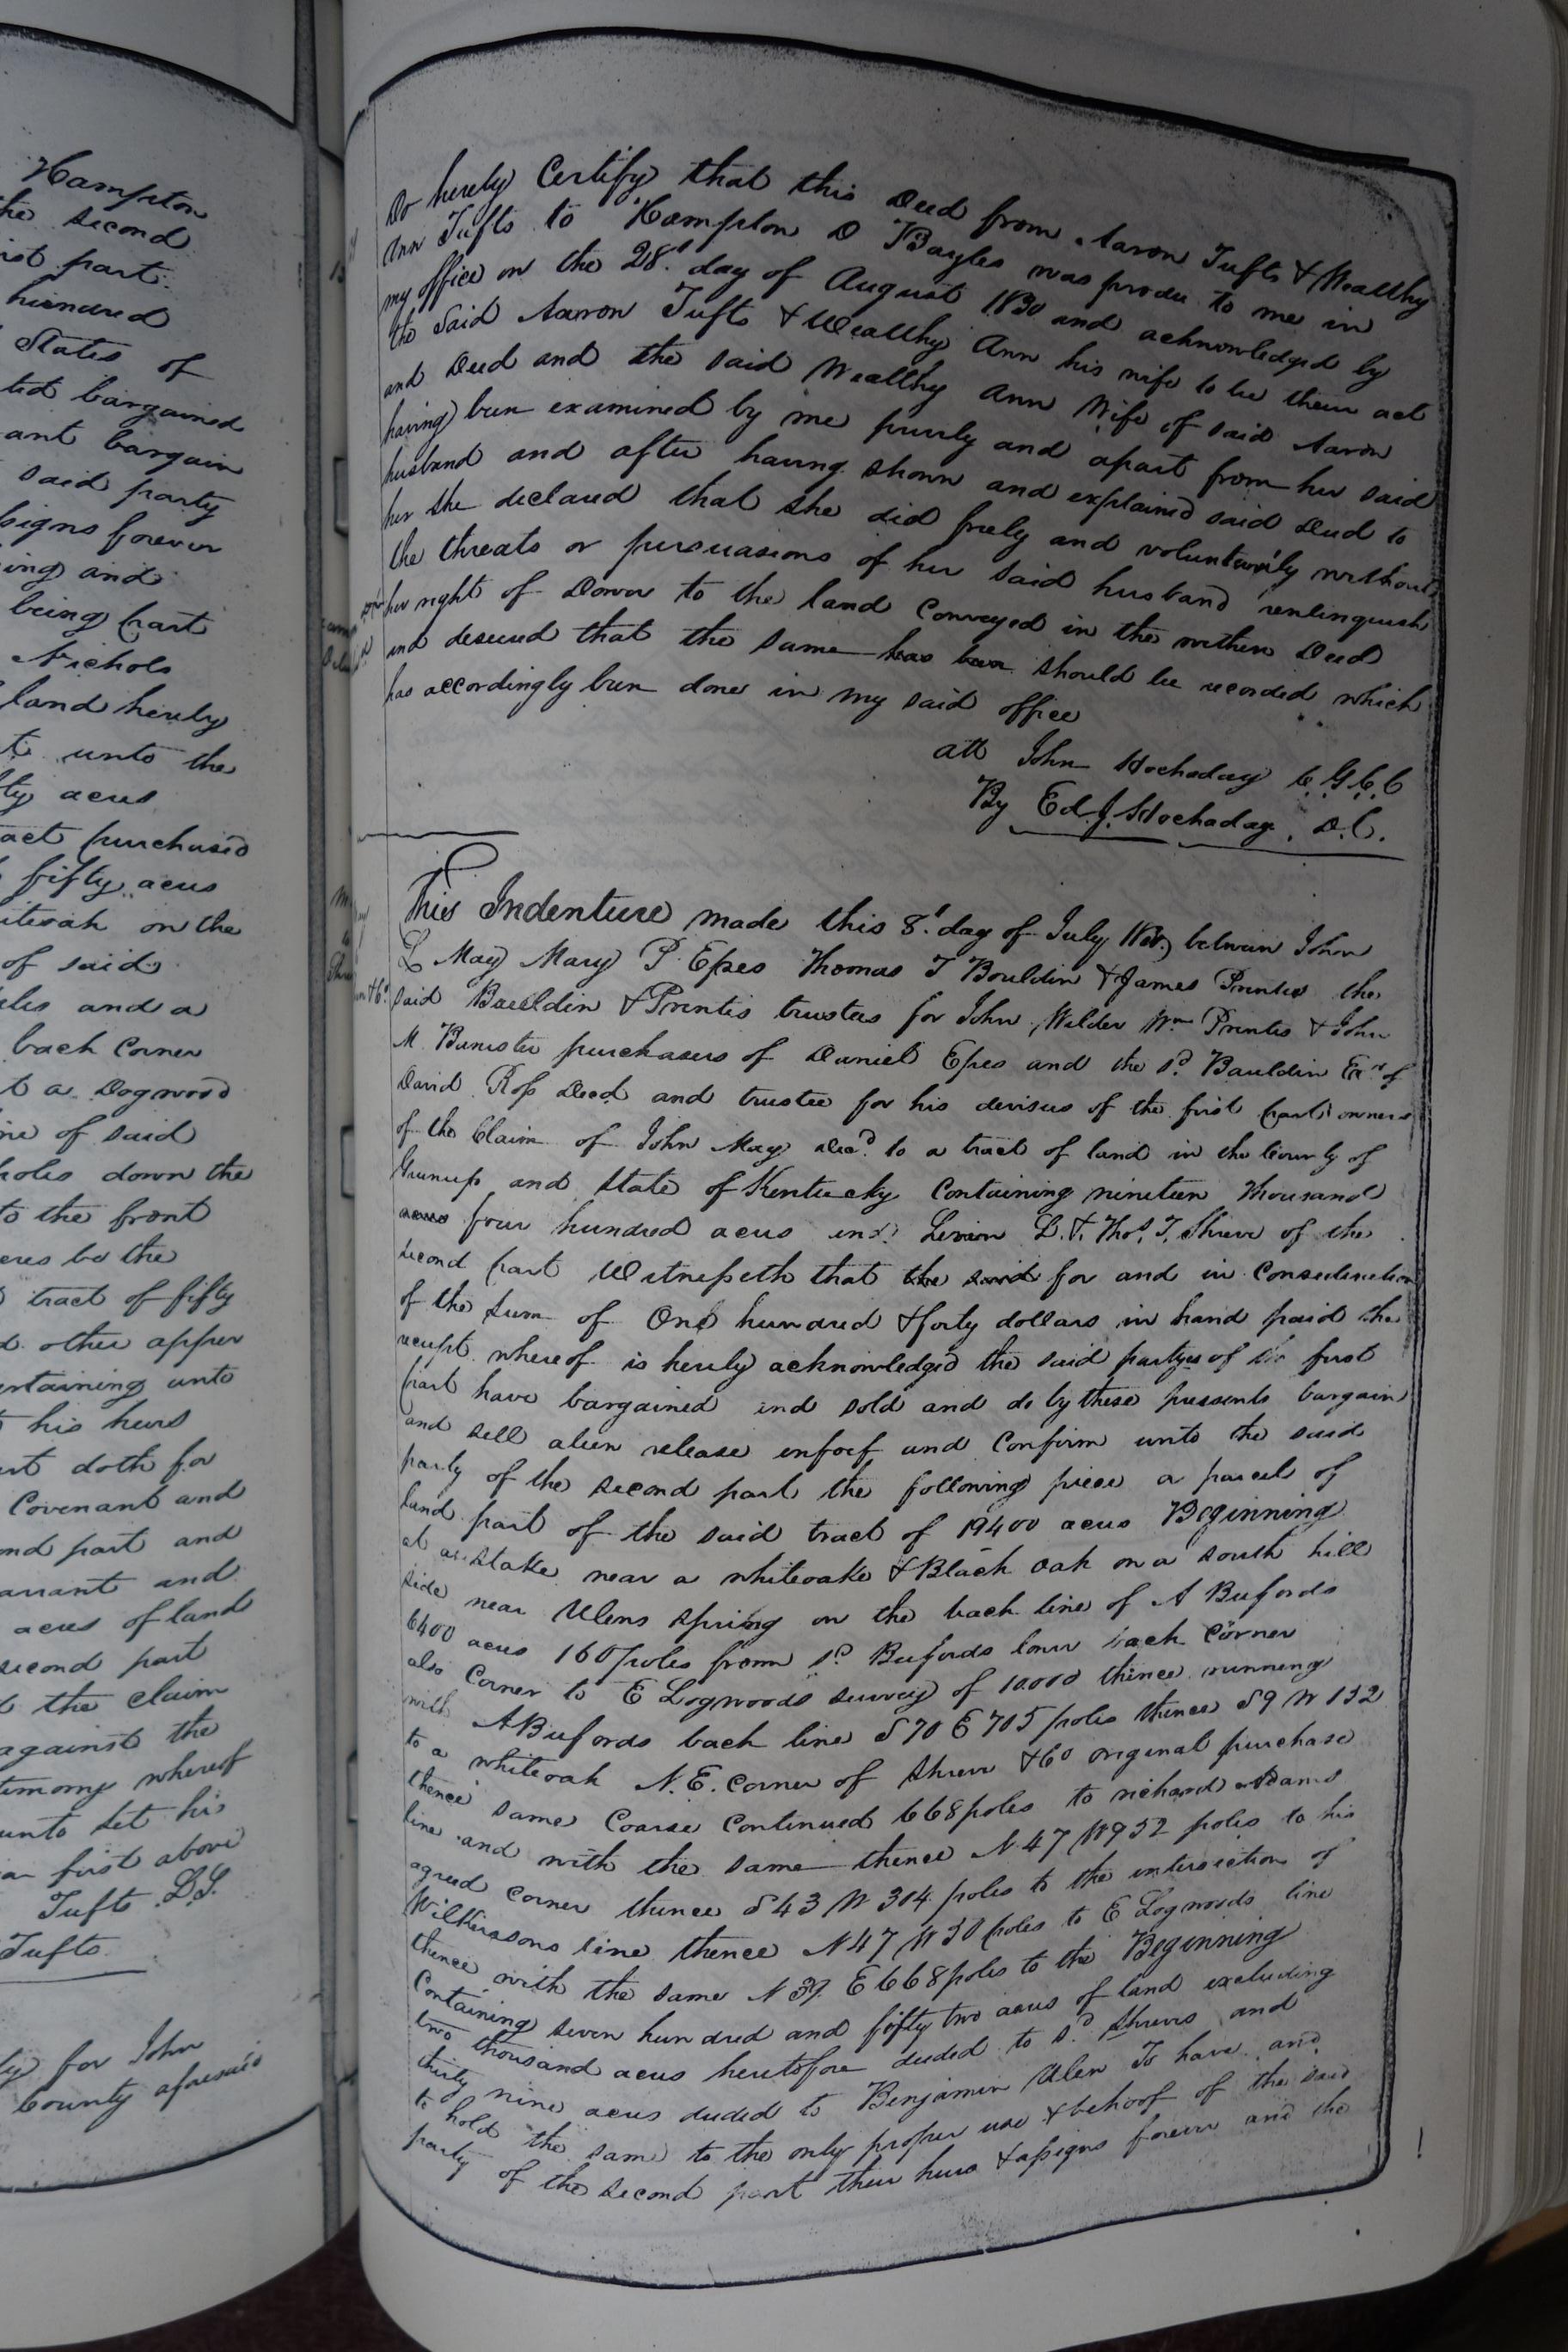 Hampton
the second
first part
hundred
States of
ted bargained
ant bargain
said party
ssigns forever
ing and
being part
Nichols
land hereby
t unto the
ty acres
act purchased
fifty acres
iteoak on the
of said
oles and a
back Corner
t a Dogwood
ine of said
holes down the
to the front
eres be the
tract of fifty
d other appur
ertaining unto
his heirs
art doth for
Covenant and
ond part and
arrant and
acres of land
second part
d the claim
against the
timony whereof
unto set his
ar first above
Tufts L.S.
Tufts
ty for John
County aforesaid
Do hereby Certify that this Deed from Aaron Tufts & Wealthy
Ann Tufts to Hampton D Bayles was produ to me in
my office on the 28t day of August 1830 and acknowledged by
the Said Aaron Tufts & Wealthy Ann his wife to be their act
and Deed and the said Wealthy Ann Wife of said Aaron
having been examined by me privily and apart from her said
husband and after having shown and explained said Deed to
her she declared that she did freely and voluntarily without
the threats or pursuasions of her said husband renlinquish
her right of Dower to the land Conveyed in the within Deed
and desired that the same has been should be recorded which
has accordingly been done in my said office
att John Hockaday C.G.C.C
By Ed. J. Hockaday, D.C.
This Indenture made this 8t day of July between John
L May Mary P. Epes Thomas T Bouldin & James Prentis the
said Bauldin & Prentis trustees for John Wilder Wm Prentis & John
M Banister purchasers of Daniel Epes and the sd Bauldin Exr of
David Ross Decd and trustee for his devisees of the first part owners
of the Claim of John May Decd to a tract of land in the County of
Greenup and State of Kentucky Containing nineteen thousand
acres four hundred acres and Levin L. & Thos. T. Shreve of the
second part Witnesseth that the said for and in Consideration
of the sum of One hundred & forty dollars in hand paid the
receipt whereof is hereby acknowledged the said partyes of the first
part have bargained and sold and do by these presents bargain
and sell alien release enfeof and Confirm unto the said
party of the second part the following piece or parcel of
land part of the said tract of 19400 acres Beginning
at a stake near a whiteoake & Black oak on a south hill
side near Ulens spring on the back line of A Bufords
6400 acres 160 poles from sd Bufords lower back Corner
also Corner to E Logwoods survey of 10.000 thence running
with A Bufords back line S 70 E 705 poles thence S 9 W 132
to a whiteoak N.E. Corner of Shreve & Co original purchase
thence same Coarse Continued 668 poles to richard Adams
line and with the same thence N 47 W 952 poles to his
agreed corner thence S 43 W 304 poles to the intersection of
Wilkersons line thence N 47 W 50 poles to E Logwoods line
thence with the same N E 668 poles to the Beginning
Containing seven hundred and fifty two acres of land excluding
two thousand acres heretofore deeded to sd Shreves and
thirty nine acres deeded to Benjamin Ulen To have and
to hold the same to the only proper use & behoof of the said
party of the second part their heirs & assigns forever and the